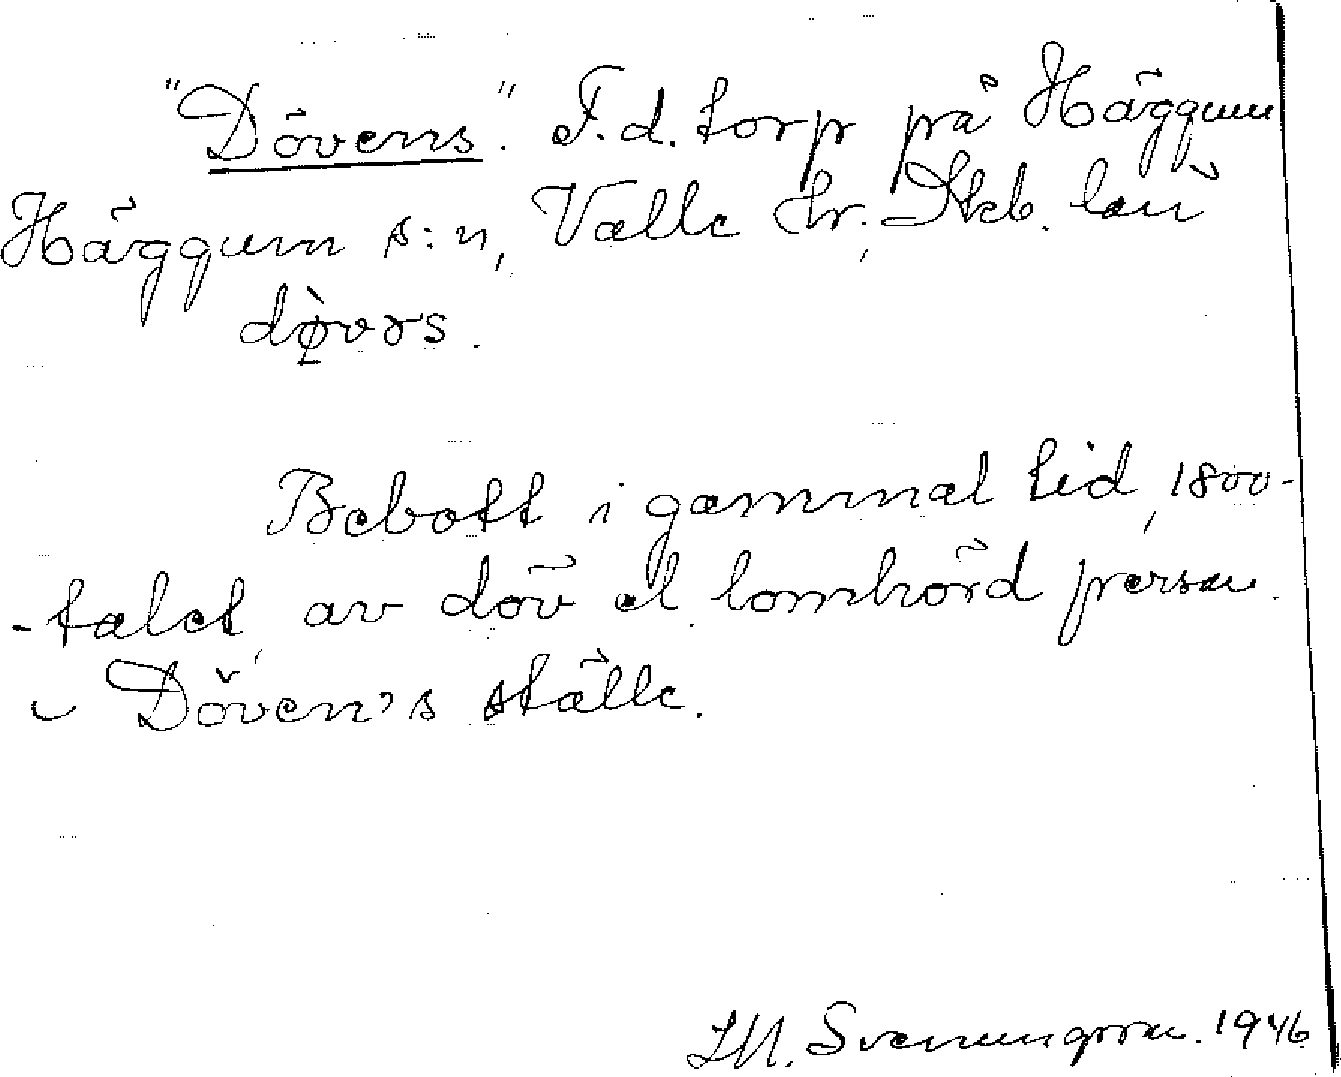 "Dövens". F.d. torp på Häggum
Häggum s:n, Valle hr, Skb. län
dø̀vəs.
Bebott i gammal tid, 1800-
-talet, av döv el. lomhörd person.
Döven's ställe.
Svenungsson. 1946